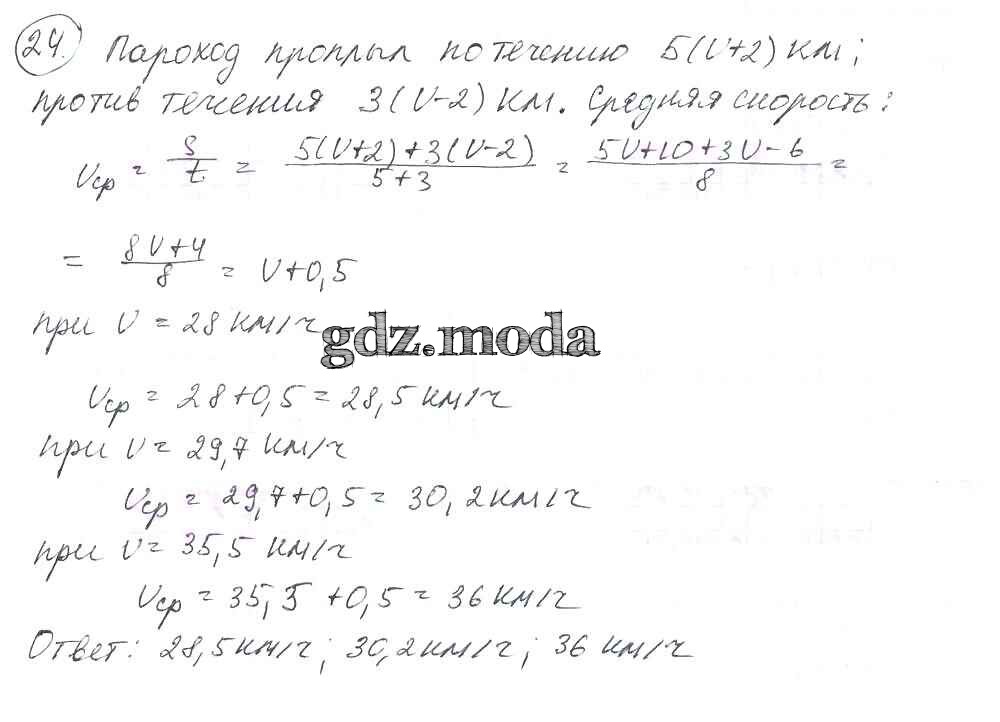 24. Пароход проплыл по течению 5(V+2) км;
против течения 3(V-2) км. Средняя скорость:
Vср = S/t = (5(V+2)+3(V-2))/(5+3) = (5V+10+3V-6)/8 =
= (8V+4)/8 = V+0,5
при V = 28 км/ч
gdz.moda
Vср = 28+0,5 = 28,5 км/ч
при V = 29,7 км/ч
Vср = 29,7+0,5 = 30,2 км/ч
при V = 35,5 км/ч
Vср = 35,5 +0,5 = 36 км/ч
Ответ: 28,5 км/ч; 30,2 км/ч; 36 км/ч